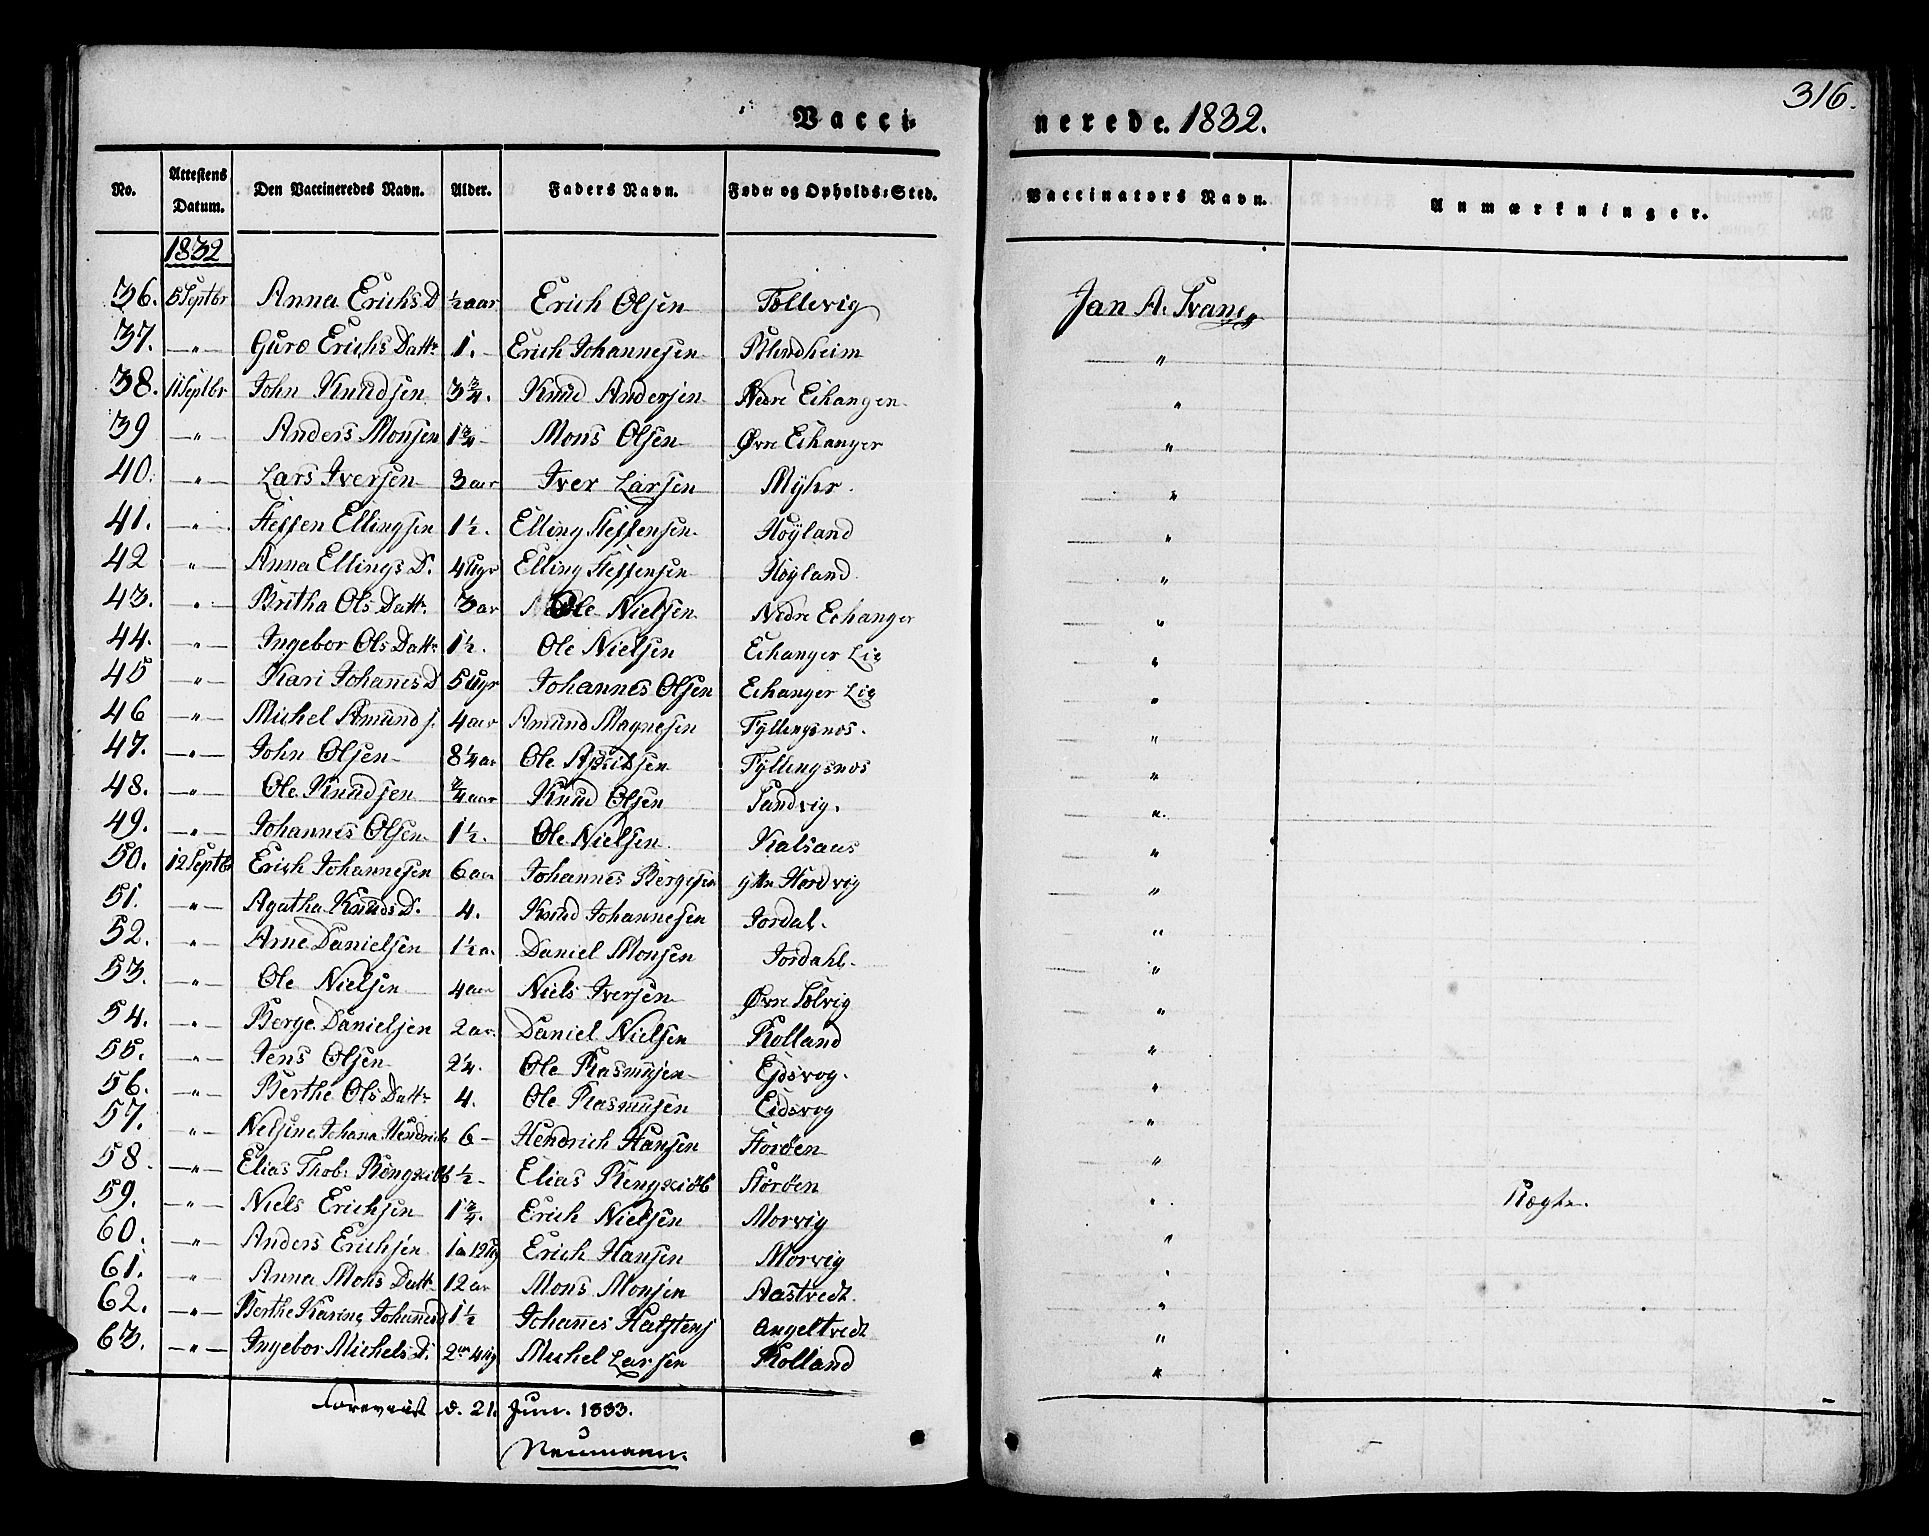 316.
Vacci-
nerede. 1832.
No. Attestens Datum. Den Vaccineredes Navn. Alder. Faders Navn. Føde- og Opholds-Sted. Vaccinators Navn. Anmærkninger.
1832
36. 5 Septbr Anna Erichs D ½ aar Erich Olsen Tollevig Jan A. Tvang
37. —"— Guro Erichs Dattr 1. Erich Johannesen Blindheim "
38. 11 Septbr John Knudsen 3¾. Knud Andersen Nedre Eihangen "
39 —"— Anders Monsen 1¾ Mons Olsen Øvre Eihanger "
40. —"— Lars Iversen 3 aar Iver Larsen Myhr. "
41. —"— Steffen Ellingsen 1½. Elling Steffensen Høyland "
42 —"— Anna Ellings D. 4 Ugr Elling Steffensen Høyland "
43. —"— Britha Ols Dattr. 3 ar Ole Nielsen Nedre Echanger "
44. —"— Ingebor Ols Dattr 1½. Ole Nielsen Eihanger Lie "
45 —"— Kari Johañes D 5 Ugr Johannes Olsen Eihanger Lie "
46 —"— Michel Amunds. 4 aar Amund Magnesen Fyllingsnos. "
47. —"— John Olsen 8¼ aar Ole Fyllingsnos "
48. —"— Ole Knudsen ¾ aar Knud Olsen Sandvig. "
49. —"— Johannes Olsen 1½. Ole Nielsen Kalsaas "
50. 12 Septbr Erich Johannesen 6 aar Johannes Bergesen ytre Hordvig "
51. —"— Agatha Knuds D. 4. Knud Johannesen Jordal. "
52. —"— Arne Danielsen 1½ a. Daniel Monsen Jordahl. "
53. —"— Ole Nielsen 4 aar Niels Iversen Øvre Tolvig "
54. —"— Berge Danielsen 2 ar. Daniel Nielsen Rolland "
55. —"— Jens Olsen 2¼. Ole Rasmusen Ejdsvog. "
56. —"— Berthe Ols Dattr 4. Ole Rasmusen Eidsvog "
57. —"— Nelsine Johana Hendrichs 6 Hendrich Hansen Storøen "
58. —"— Elias Thob: ½ Elias Storøen "
59. —"— Niels Erichsen 1¾. Erich Nielsen Morvig "
60. —"— Anders Erichsen 1 a 12 Ug Erich Hansen Morvig "
61. —"— Anna Mons Dattr 12 ar Mons Monsen Aastvedt "
62. —"— Berthe Karine Johannesd 1½ Johañes Halstens Angeltvedt "
63. —"— Ingebor Michels D. 2 ar 4 Ug Michel Larsen Rolland "
Foreviist d. 21. Jun. 1833.
Neumann.